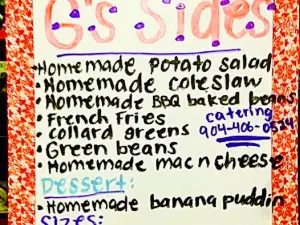 G's Sides
• Homemade potato salad
• Homemade coleslaw
• Homemade BBQ baked beans
• French Fries
catering
• collard greens
904-406-0514
• Green beans
• Homemade mac n cheese
Dessert:
• Homemade banana puddin
Sizes: